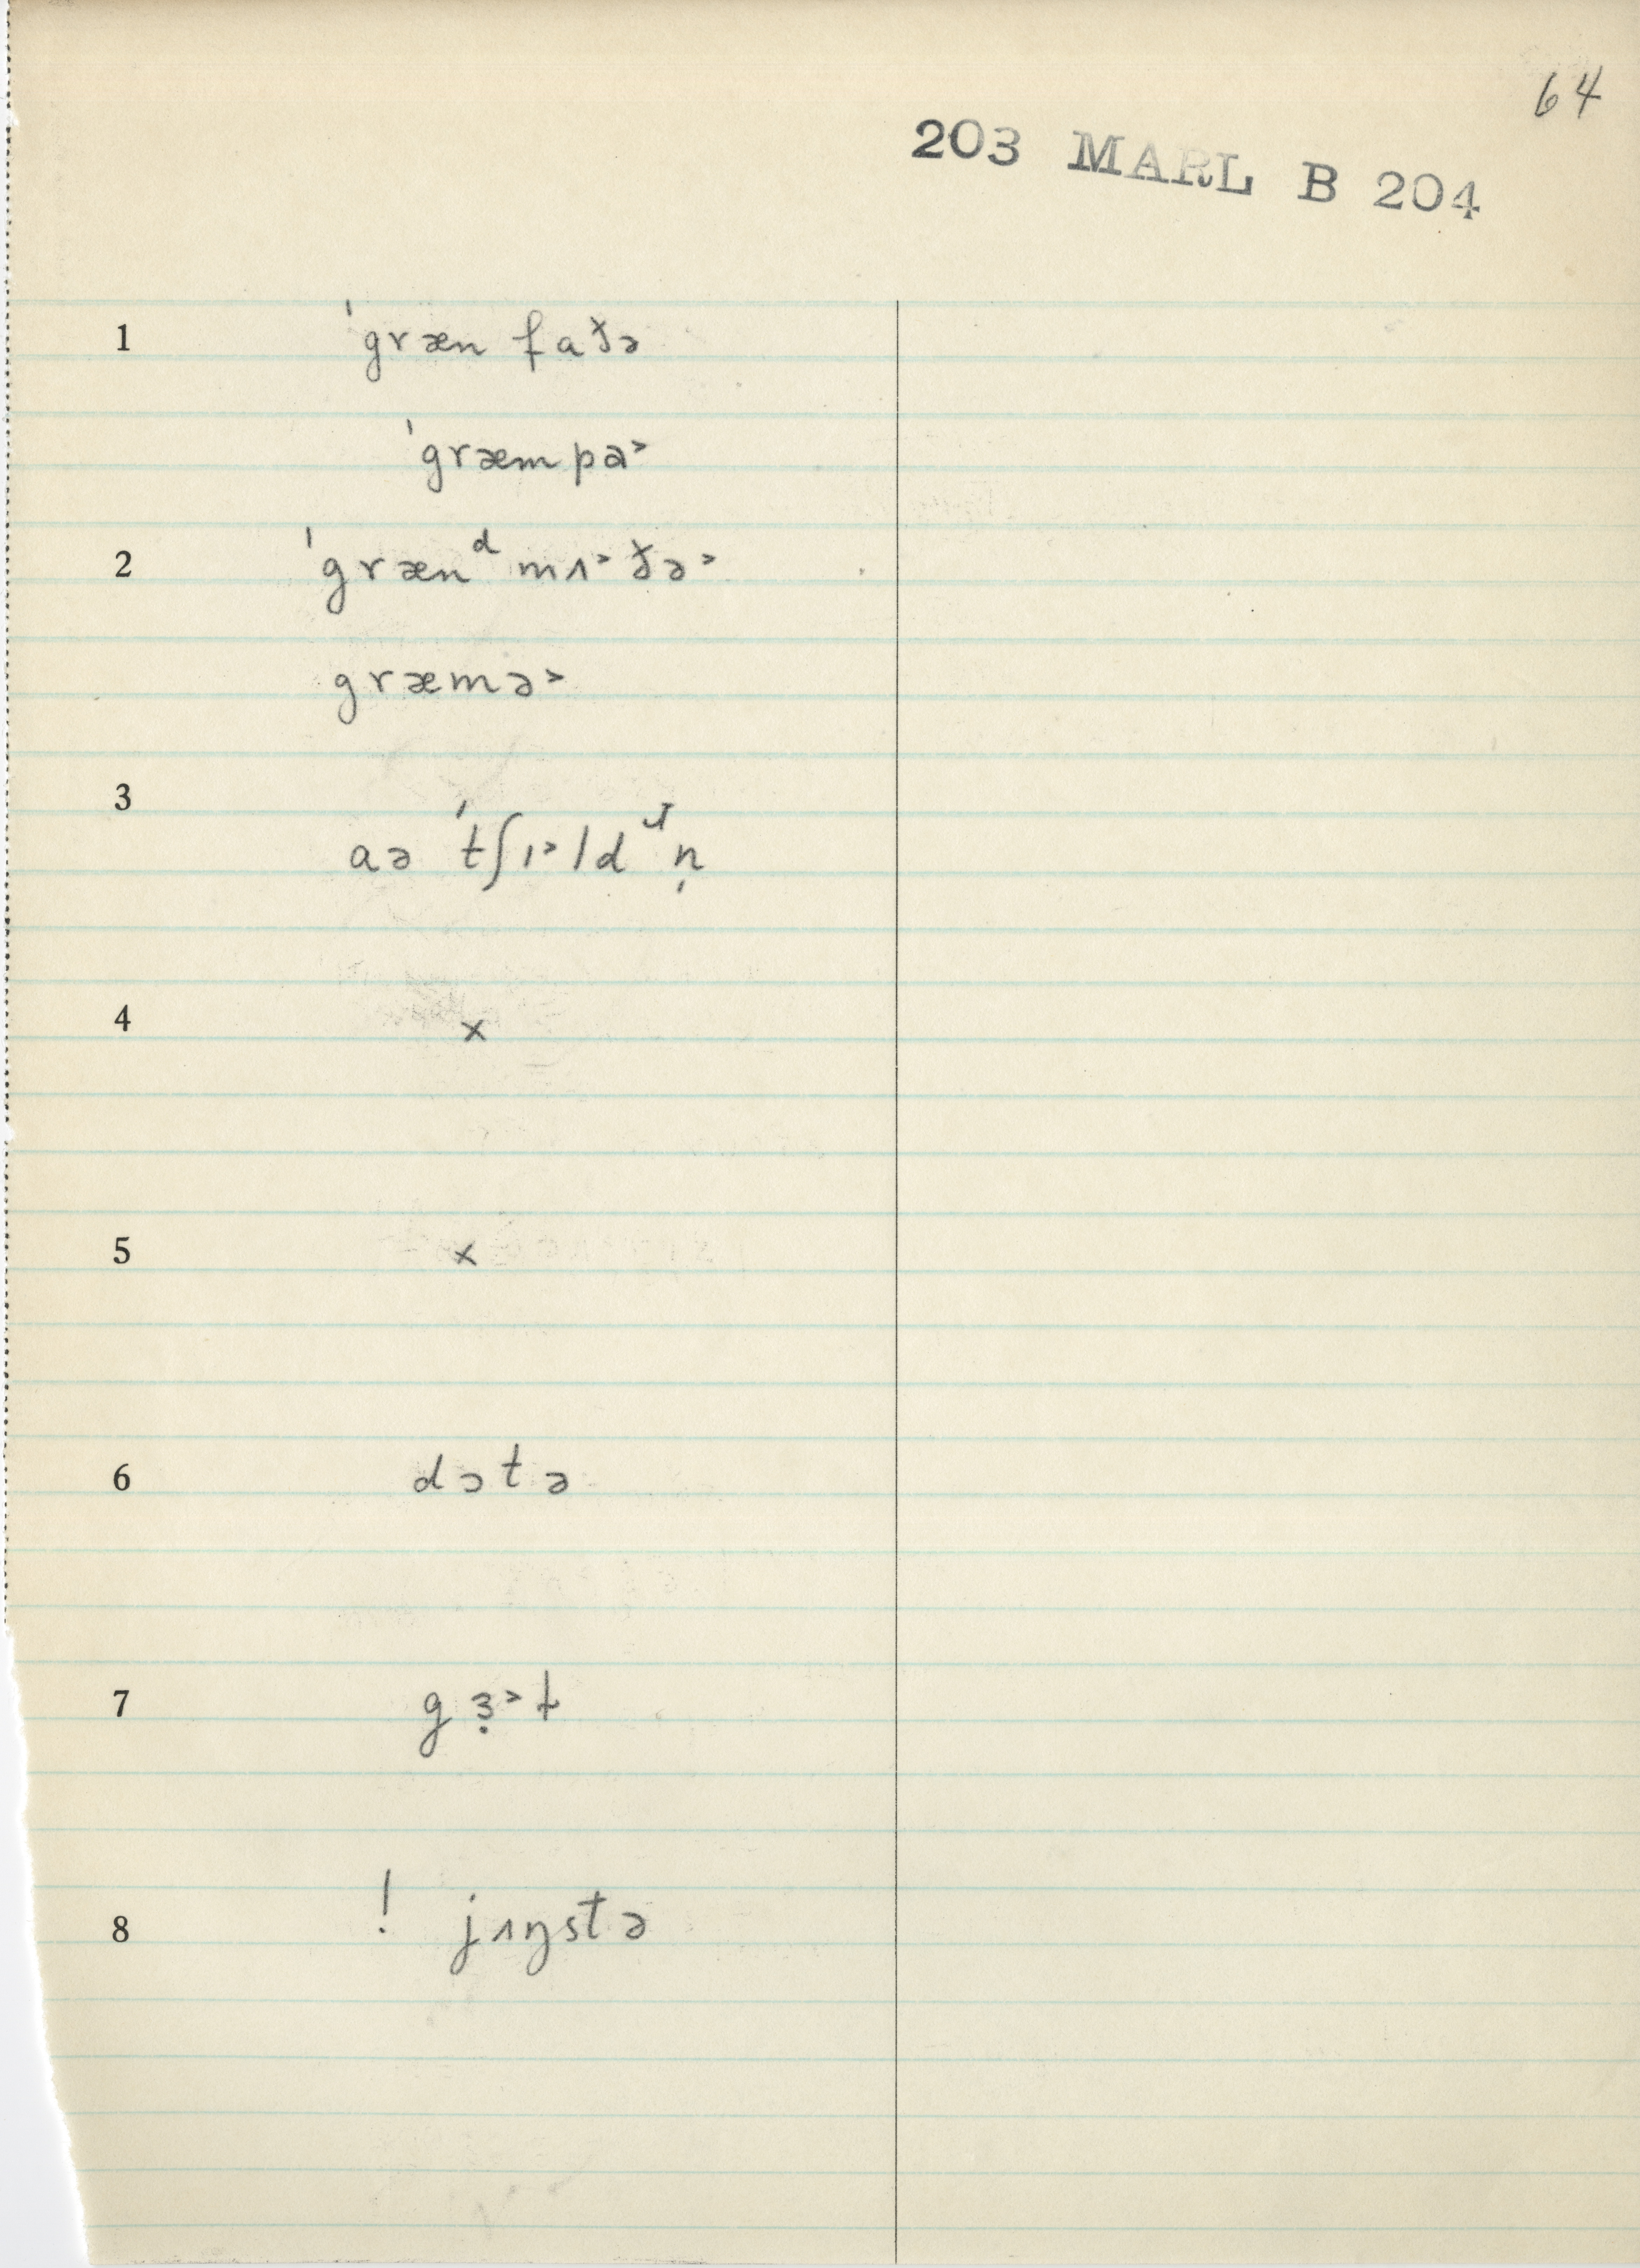 64
203 MARL B 204
1 ˈgræn faðə
ˈgræmpa˃
2 ˈgrænᵈ mʌ˃ðə˃
græmə˃
3 aə ˈtʃɪ˃ldᴶn̩
4 x
5 x
6 dɔtə
7 gɜ̣˃ɫ
8 ! jʌŋstə